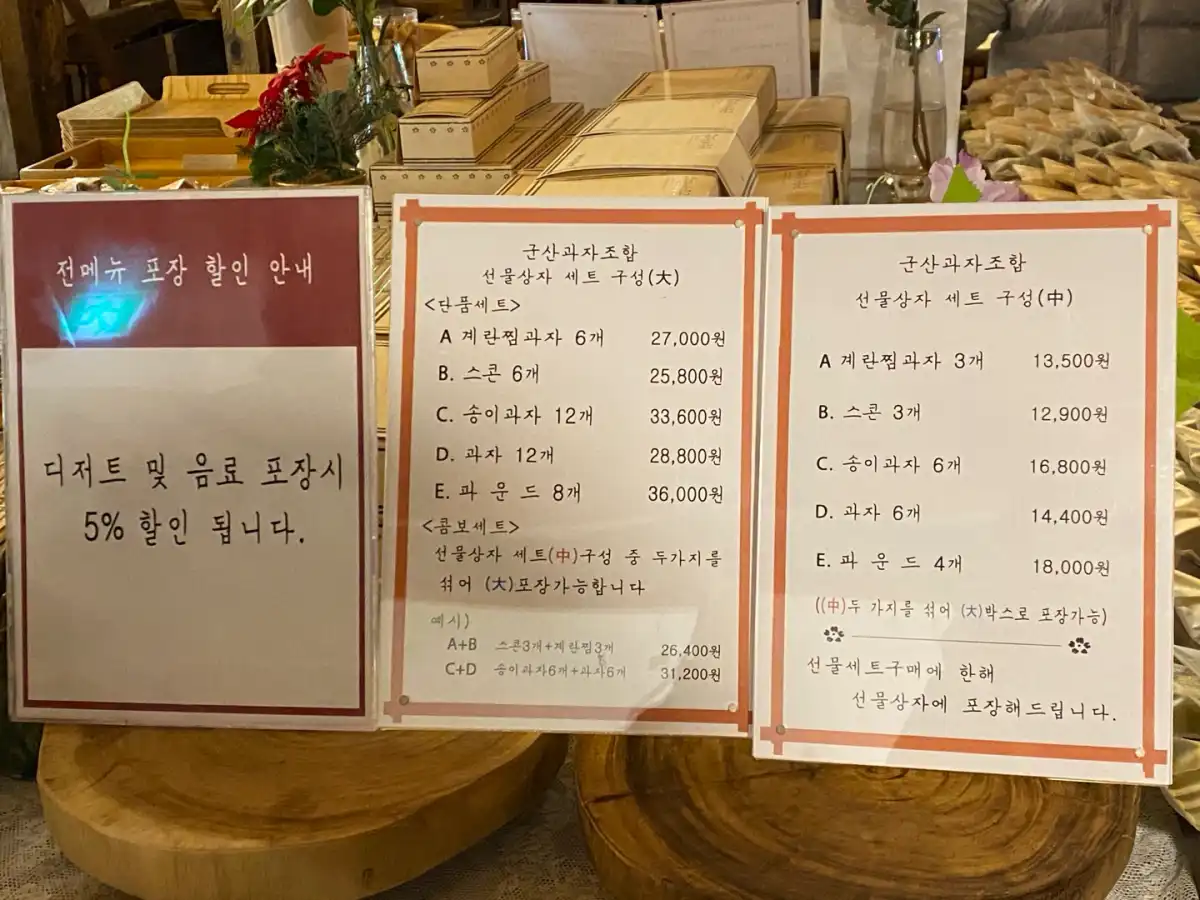 전메뉴 포장 할인 안내
디저트 및 음료 포장시
5% 할인 됩니다.
군산과자조합
선물상자 세트 구성(大)
<단품세트>
A 계란찜과자 6개 27,000원
B. 스콘 6개 25,800원
C. 송이과자 12개 33,600원
D. 과자 12개 28,800원
E. 파 운 드 8개 36,000원
<콤보세트>
선물상자 세트(中)구성 중 두가지를
섞어 (大)포장가능합니다
예시)
A+B 스콘3개+계란찜3개 26,400원
C+D 송이과자6개+과자6개 31,200원
군산과자조합
선물상자 세트 구성(中)
A 계란찜과자 3개 13,500원
B. 스콘 3개 12,900원
C. 송이과자 6개 16,800원
D. 과자 6개 14,400원
E. 파 운 드 4개 18,000원
((中)두 가지를 섞어 (大)박스로 포장가능)
선물세트구매에 한해
선물상자에 포장해드립니다.